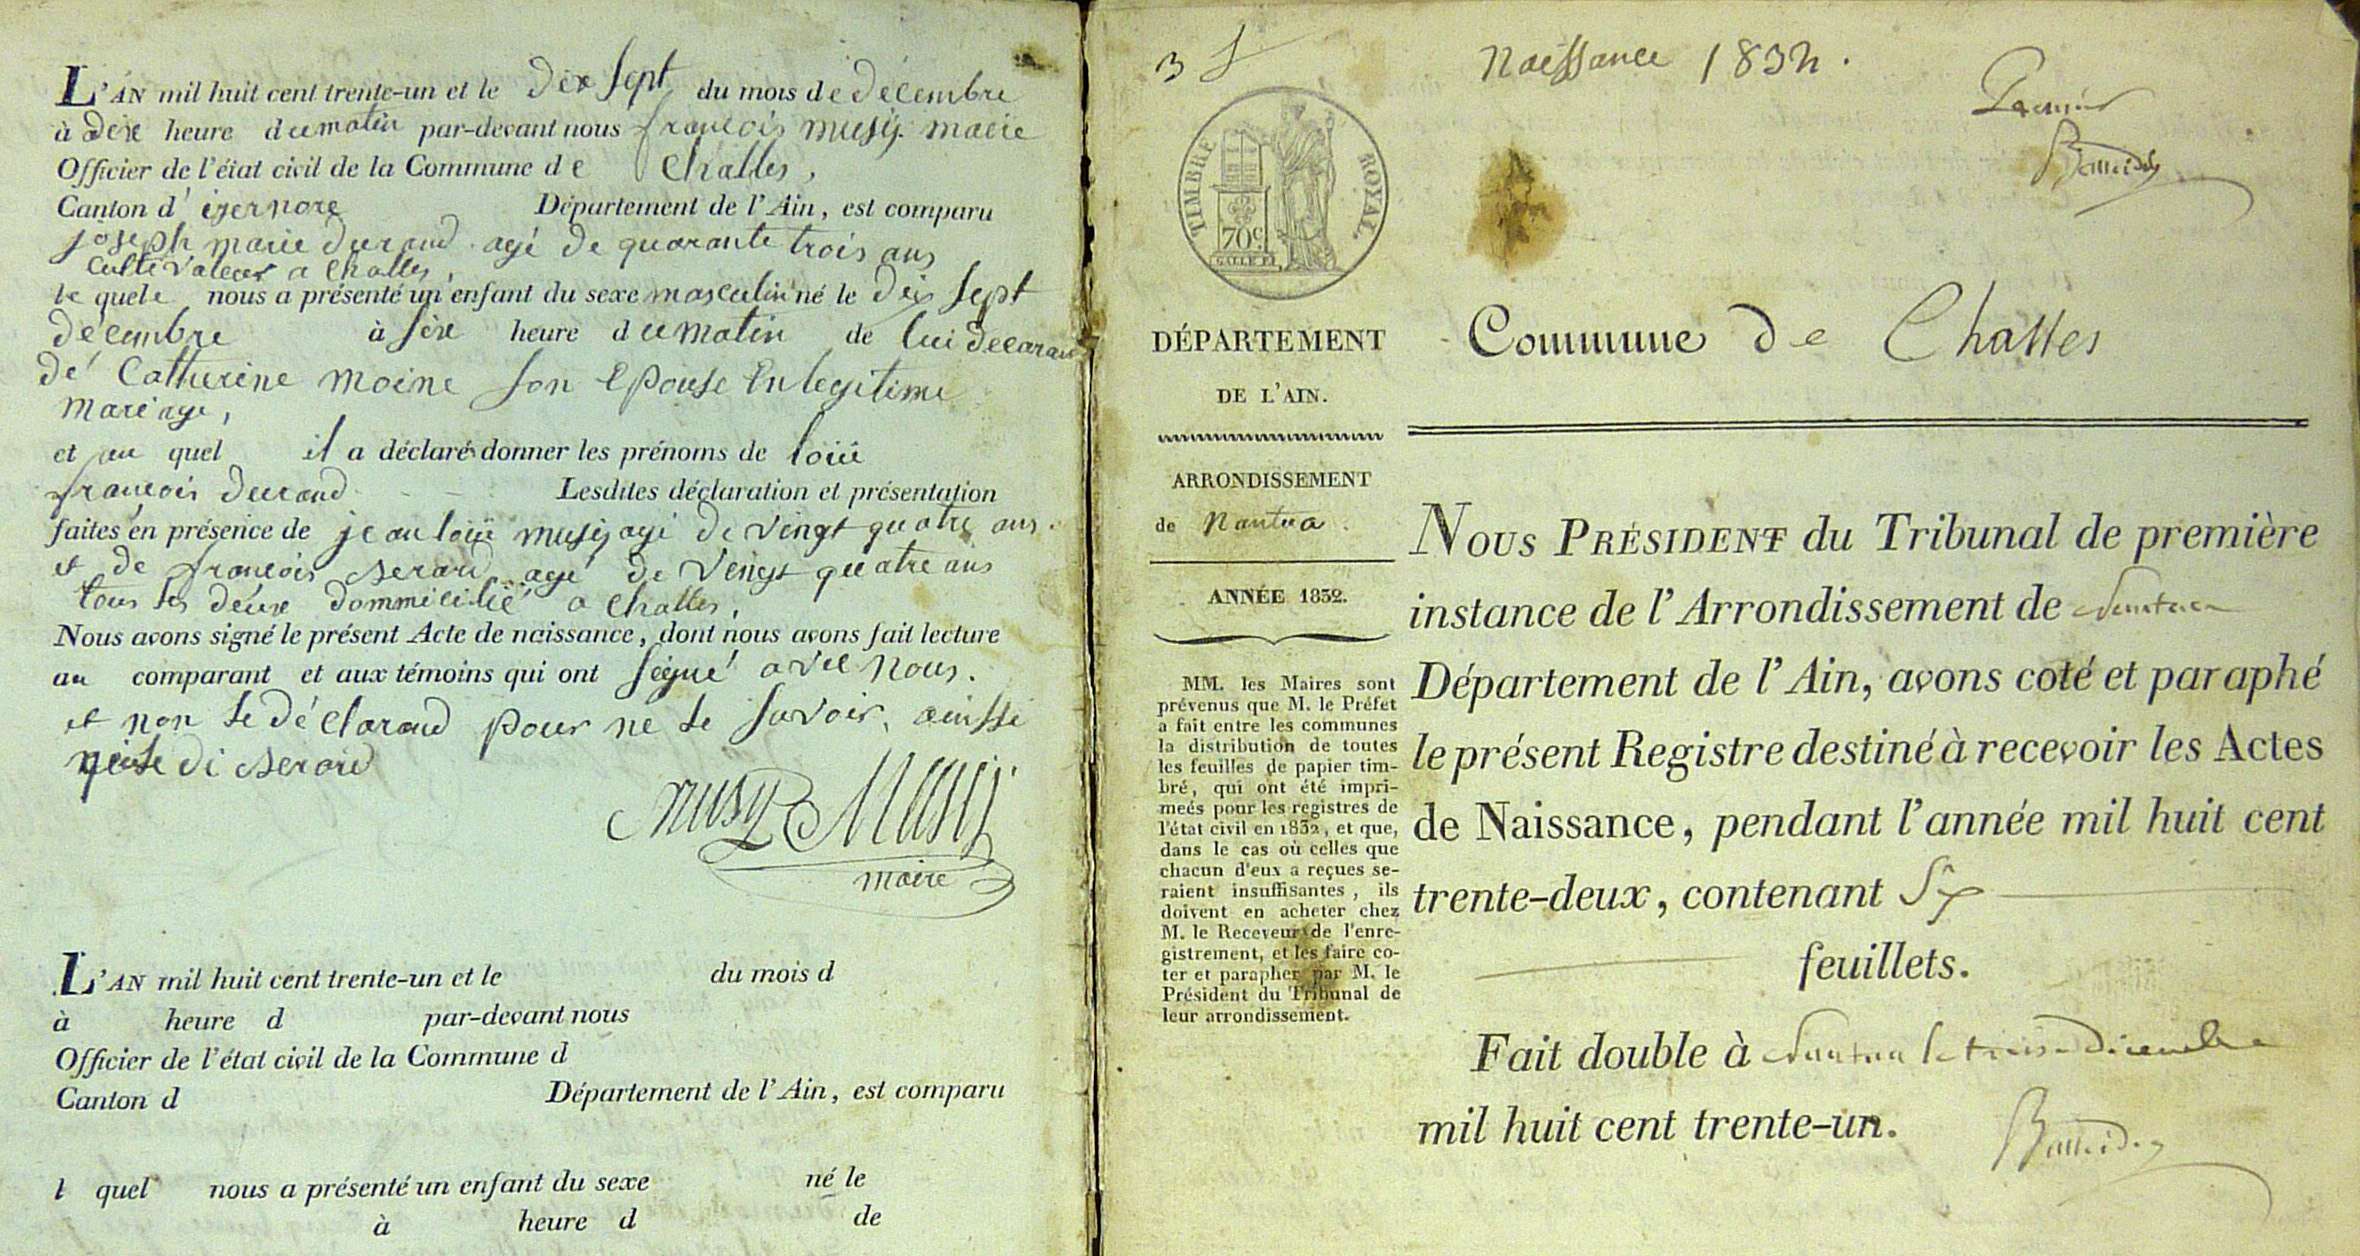 L'AN mil huit cent trente-un et le dix sept du mois de decembre
à dix heure du matin par-devant nous françois musÿ maire
Officier de l'état civil de la Commune de Challes,
Canton d'izernore Département de l'Ain, est comparu
joseph marie durand agé de quarante trois ans
cultivateur a Challes,
le quele nous a présenté un enfant du sexe masculin né le dix sept
decembre à six heure du matin de lui
dé Catherine moine son epouse en legitime
mariage,
et au quel il a déclaré donner les prénoms de loüi
françois durand Lesdites déclaration et présentation
faites en présence de jean loüi musÿ agé de vingt quatre ans
et de françois agé de vingt quatre ans
tous les deux dommicilié a Challes,
Nous avons signé le présent Acte de naissance, dont nous avons fait lecture
au comparant et aux témoins qui ont signé avec nous.
et non le déclarand pour ne le savoir, ainsi
musÿ Musÿ
maire
L'AN mil huit cent trente-un et le du mois d
à heure d par-devant nous
Officier de l'état civil de la Commune d
Canton d Département de l'Ain, est comparu
l quel nous a présenté un enfant du sexe né le
à heure d de
3 Naissance 1832.
Premier
TIMBRE ROYAL.
70c.
DÉPARTEMENT
DE L'AIN.
ARRONDISSEMENT
de Nantua
ANNÉE 1832.
MM. les Maires sont
prévenus que M. le Préfet
a fait entre les communes
la distribution de toutes
les feuilles de papier tim-
bré, qui ont été impri-
meés pour les registres de
l'état civil en 1832, et que,
dans le cas où celles que
chacun d'eux a reçues se-
raient insuffisantes, ils
doivent en acheter chez
M. le Receveur de l'enre-
gistrement, et les faire co-
ter et parapher par M. le
Président du Tribunal de
leur arrondissement.
Commune de Challes
NOUS PRÉSIDENT du Tribunal de première
instance de l'Arrondissement de Nantua
Département de l'Ain, avons coté et paraphé
le présent Registre destiné à recevoir les Actes
de Naissance, pendant l'année mil huit cent
trente-deux, contenant Six
feuillets.
Fait double à Nantua le treize Decembre
mil huit cent trente-un.